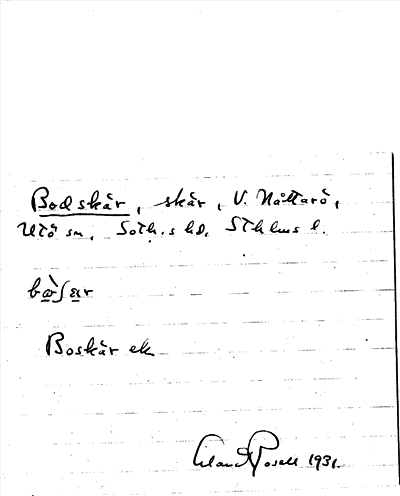 Bodskär, skär, V. Nåttarö,
Utö sn, Soth.s hd, Sthlms l.
Boskär ek
Erland Rosell 1931.